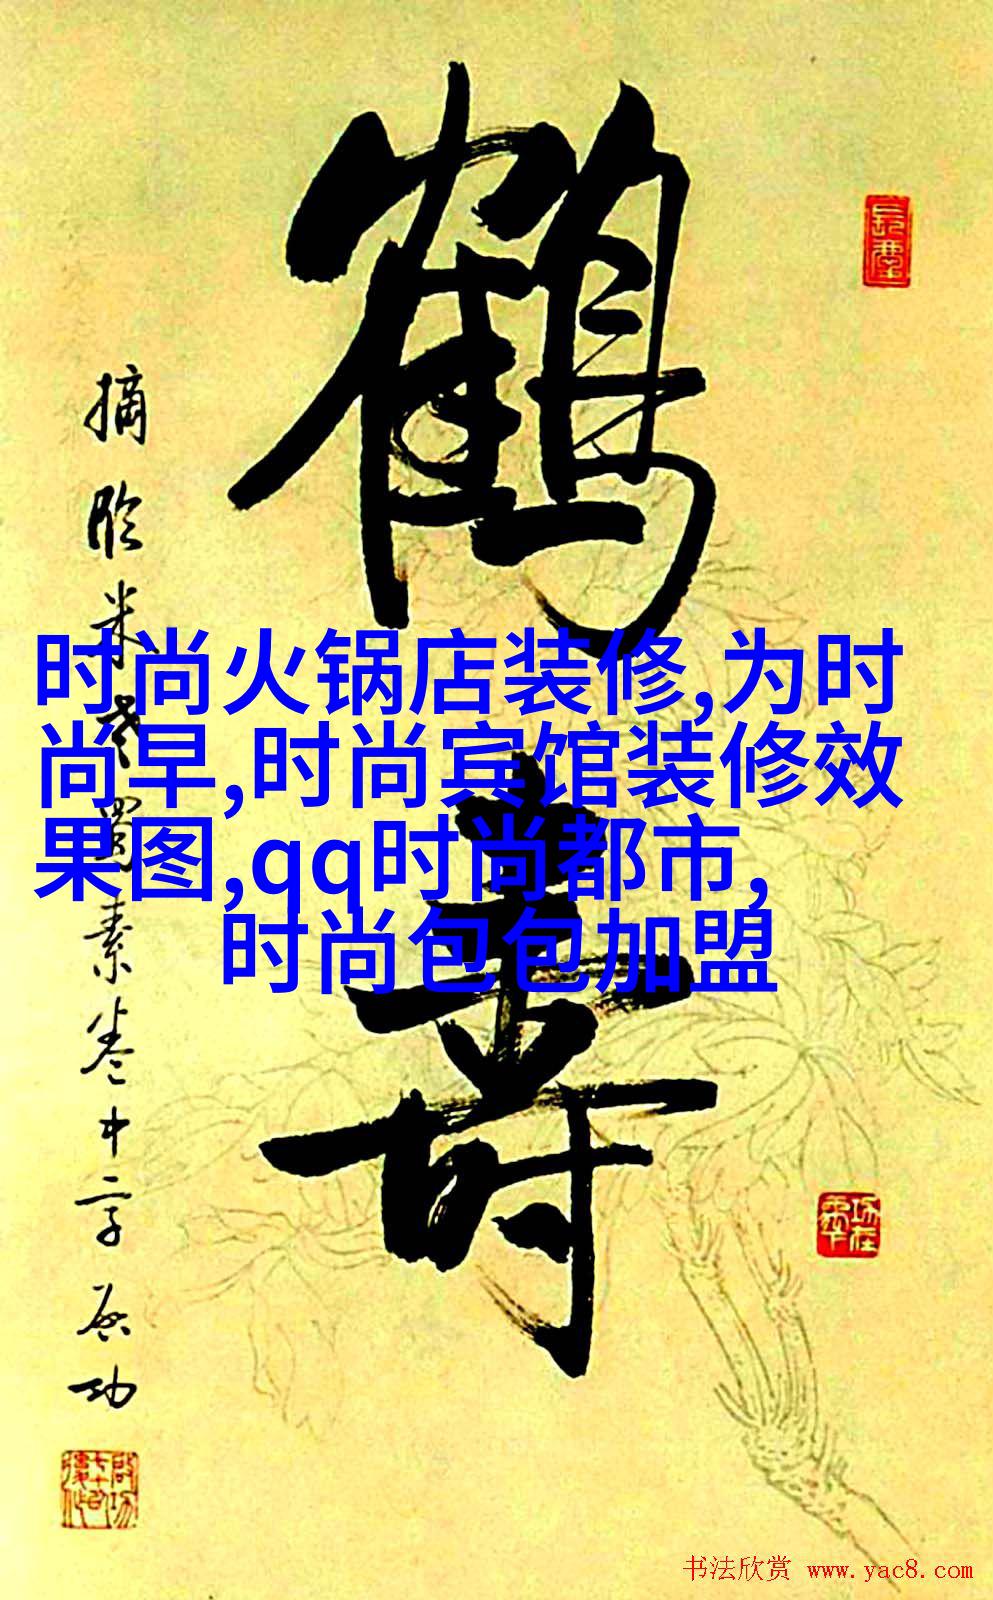 鹤寿
摘临米老蜀素卷中字 启功
时尚火锅店装修,为时
尚早,时尚宾馆装修效
果图,qq时尚都市,
时尚包包加盟
书法欣赏 www.yac8.com